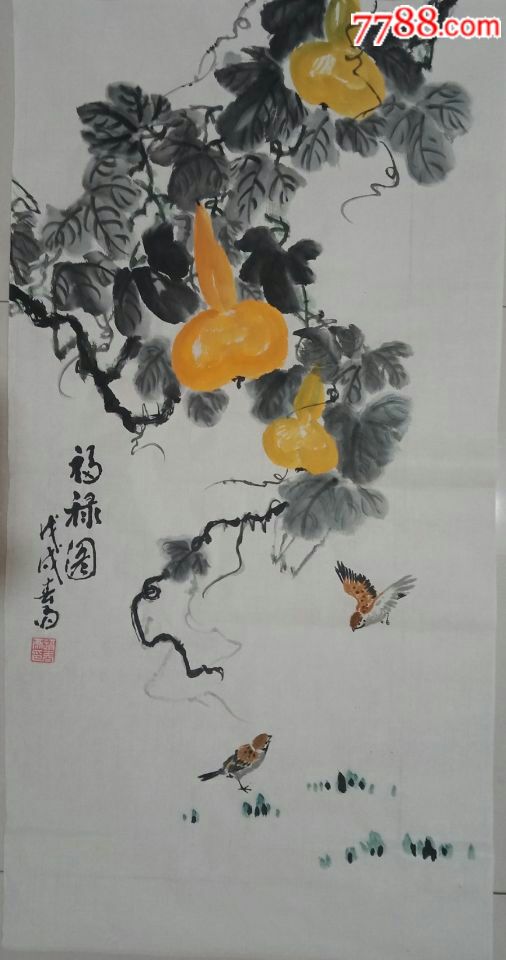 7788.com
福禄图
戊戌春月